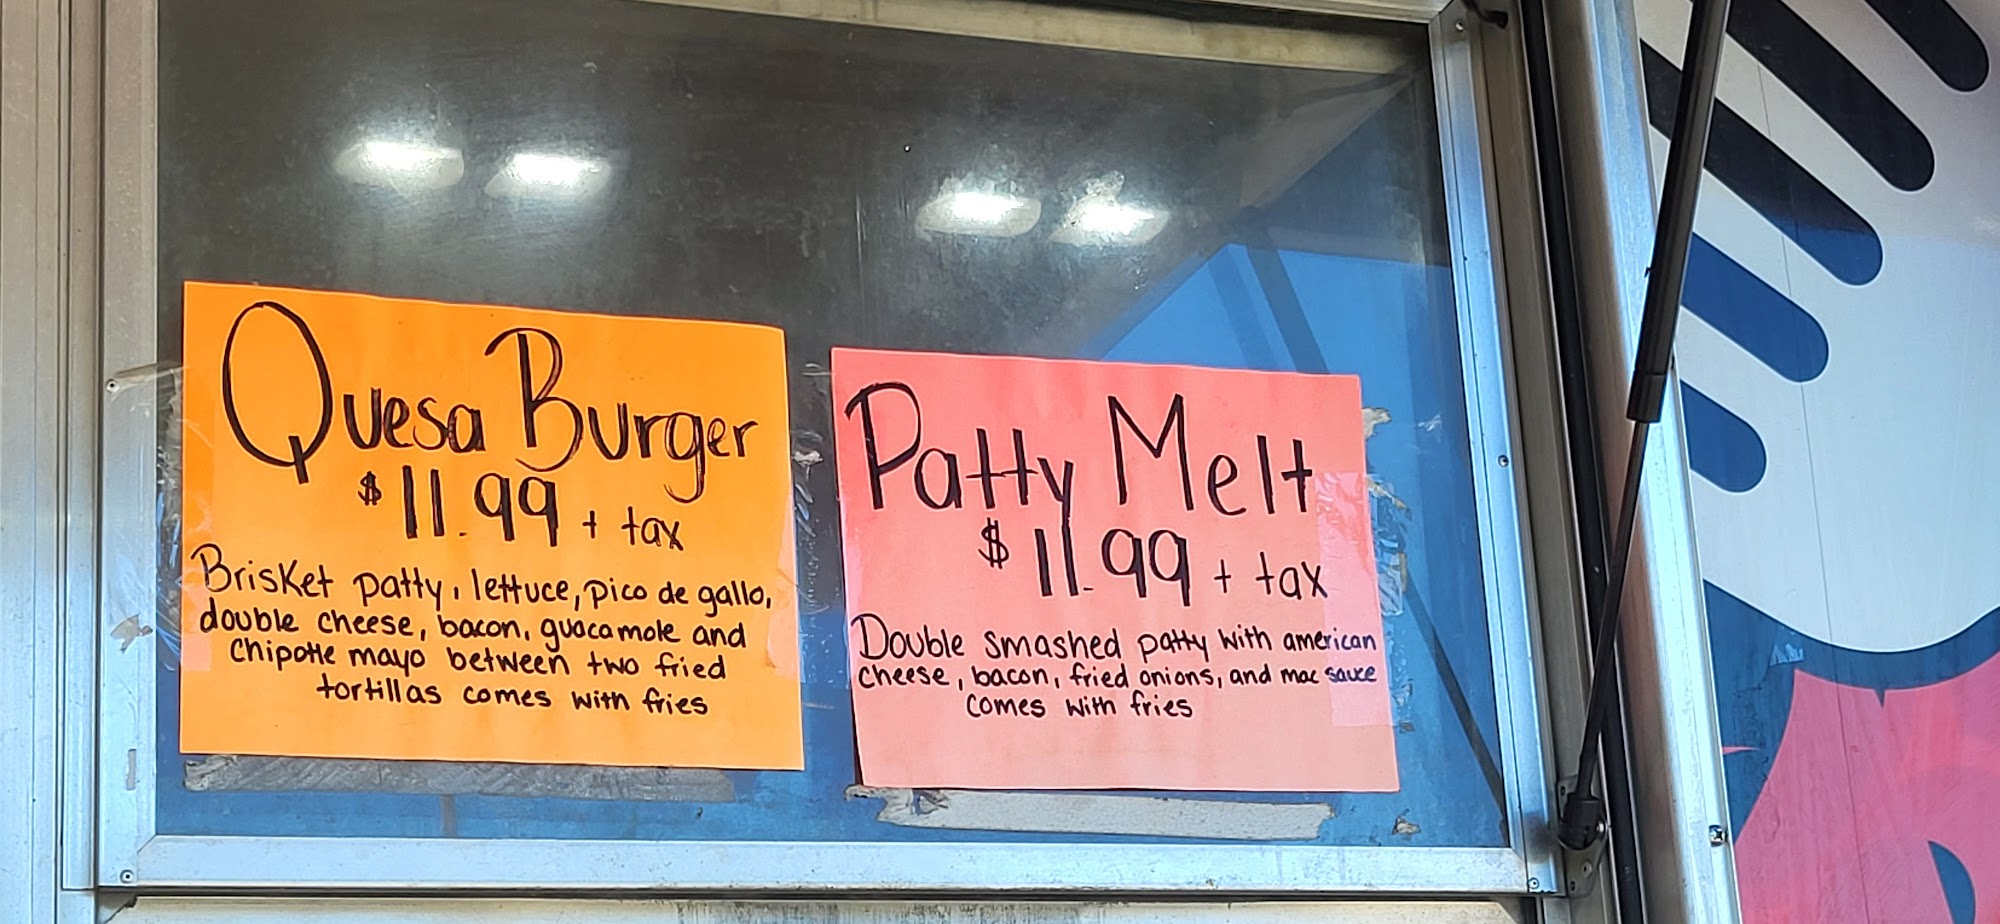 Quesa Burger
$11.99 + tax
Brisket patty, lettuce, pico de gallo,
double cheese, bacon, guacamole and
Chipotle mayo between two fried
tortillas comes with fries
Patty Melt
$11.99 + tax
Double smashed patty with american
cheese, bacon, fried onions, and mac sauce
comes with fries